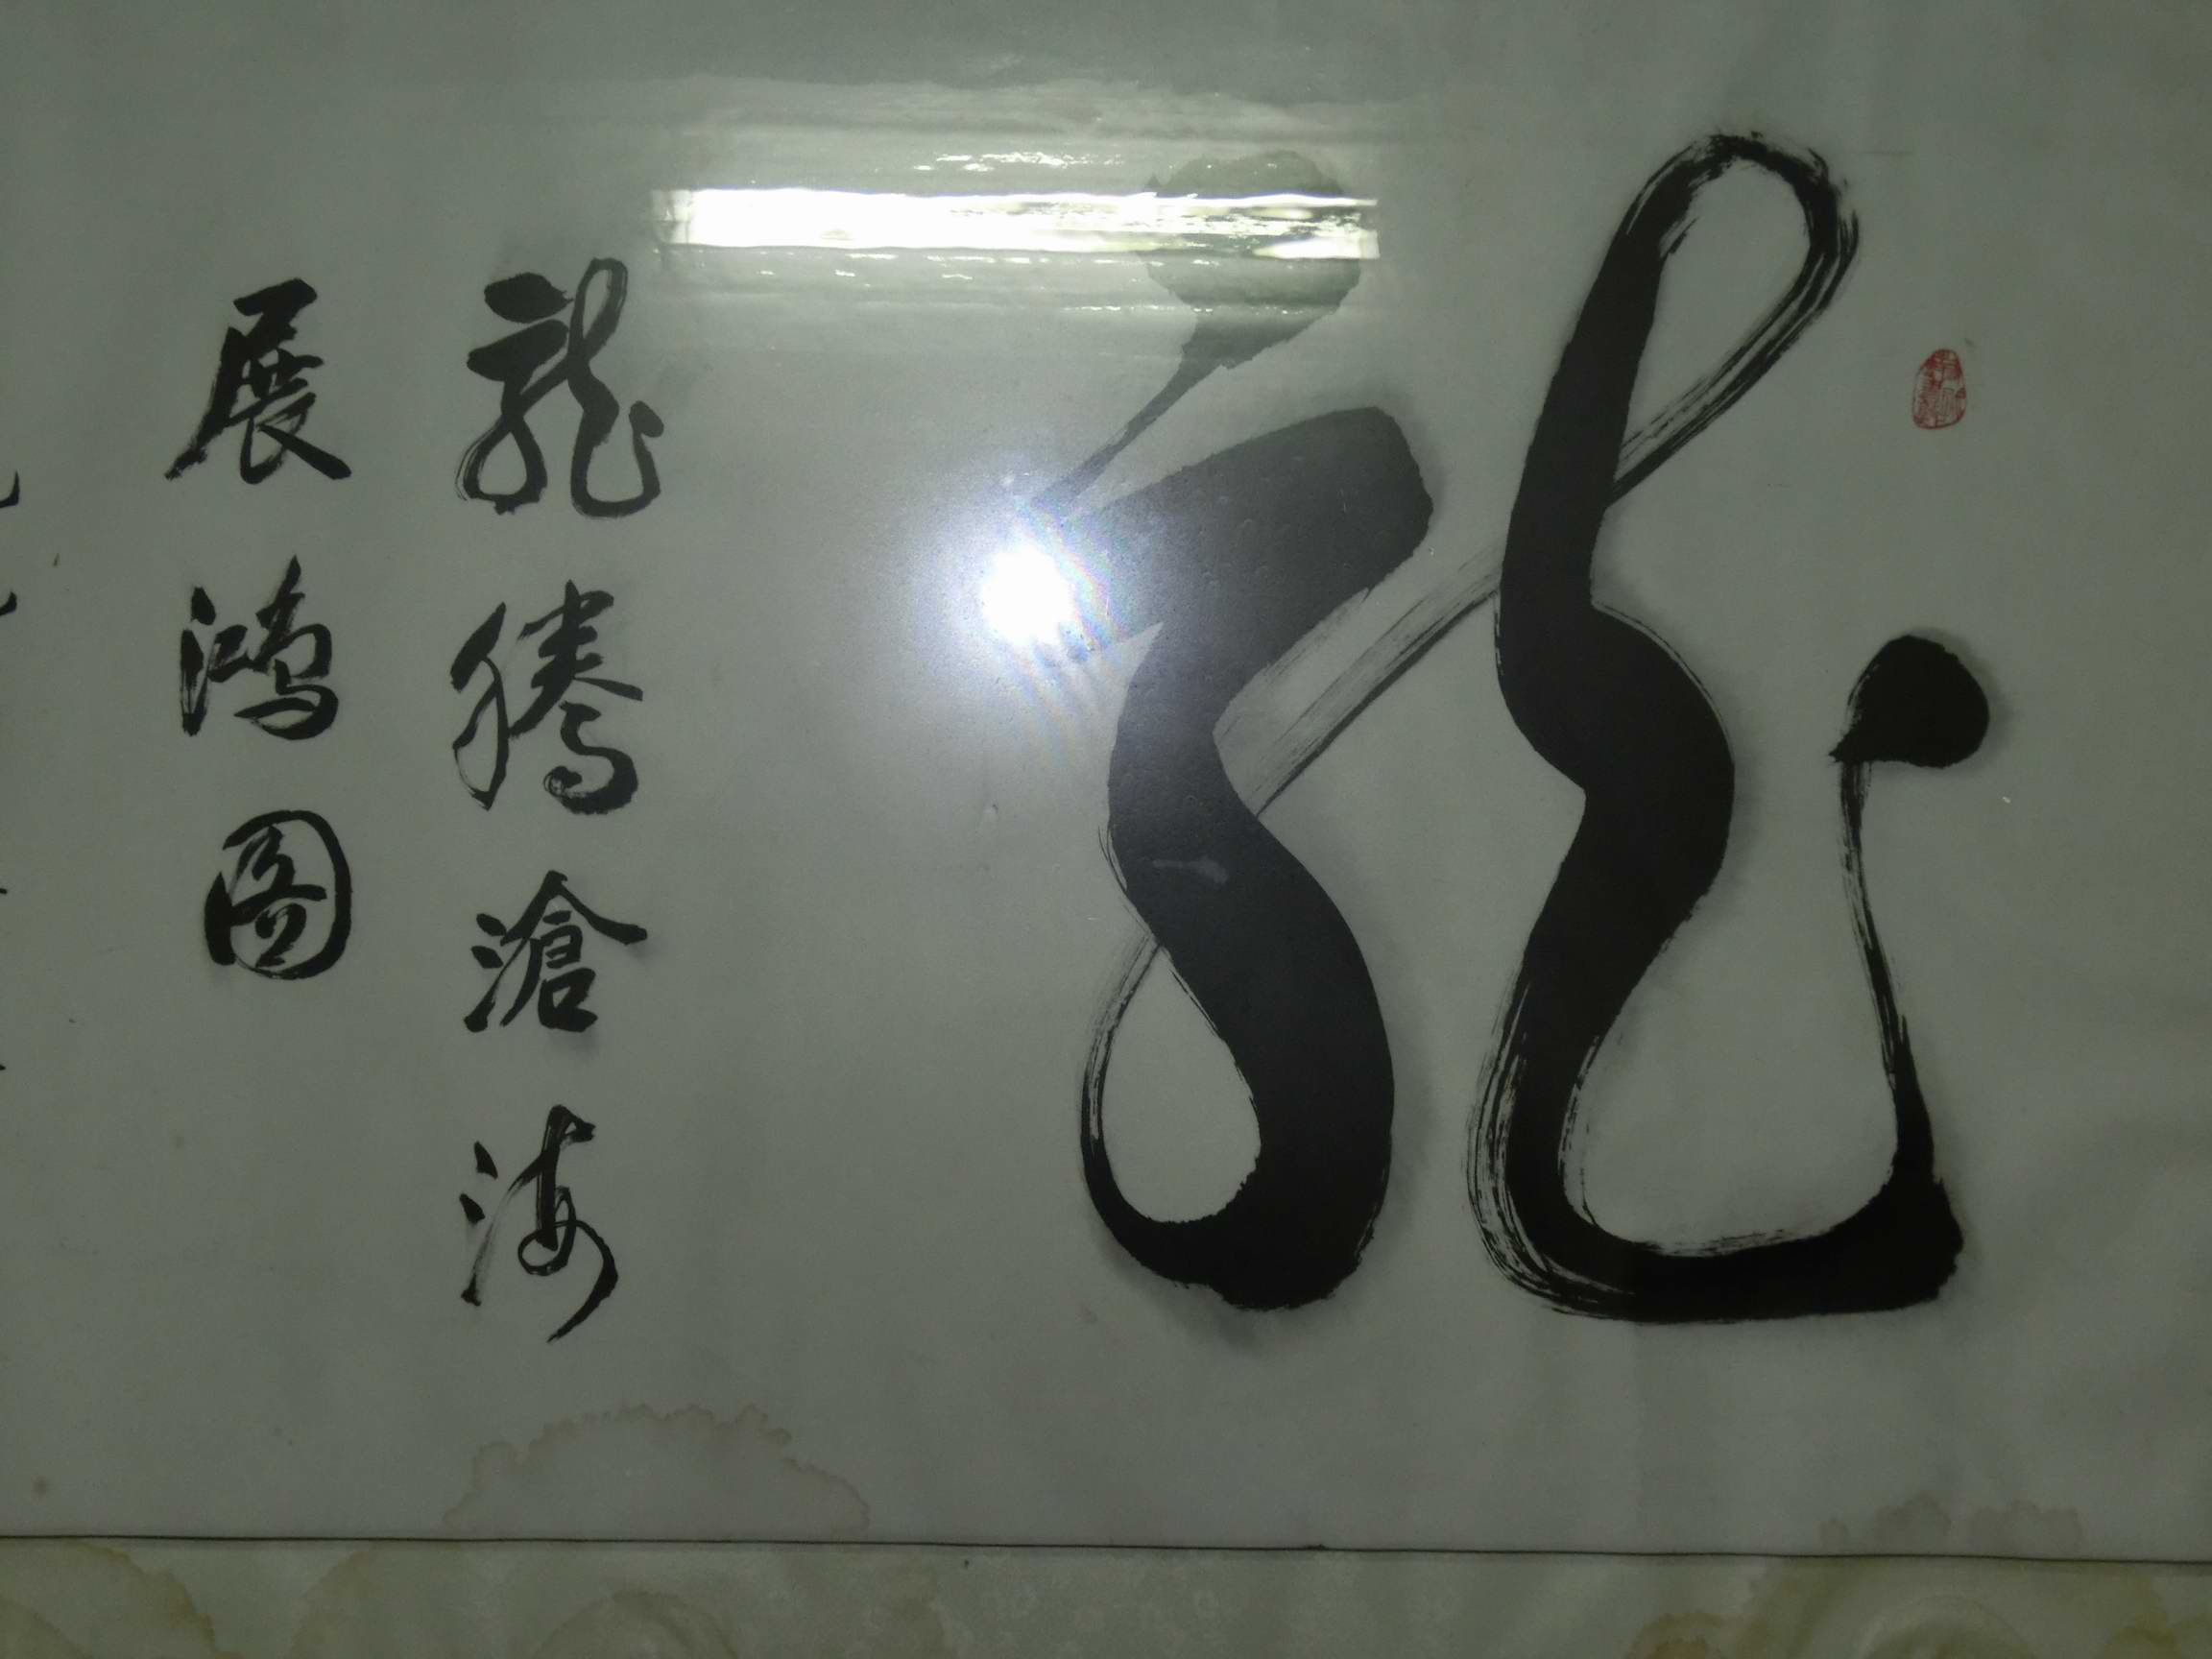 龍
龍騰滄海
展鴻圖